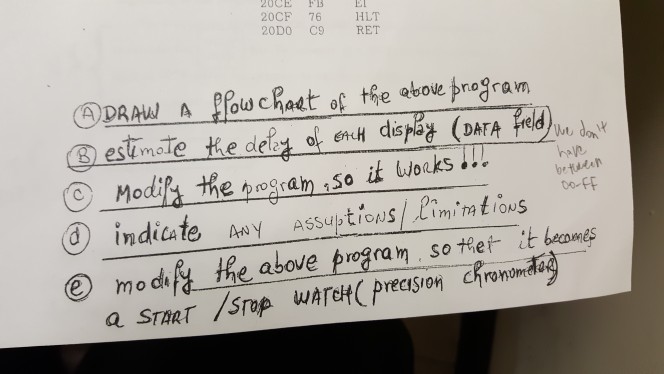 20CE FB EI
20CF 76 HLT
20D0 C9 RET
(A) DRAW A flowchart of the above program
(B) estimate the delay of EACH display (DATA field)
we don't
have
between
00-FF
(C) Modify the program, so it works!!!
(d) indicate ANY ASSUPTIONS/limitations
(e) modify the above program, so thet it becomes
a START /STOP WATCH (precision chronometer)